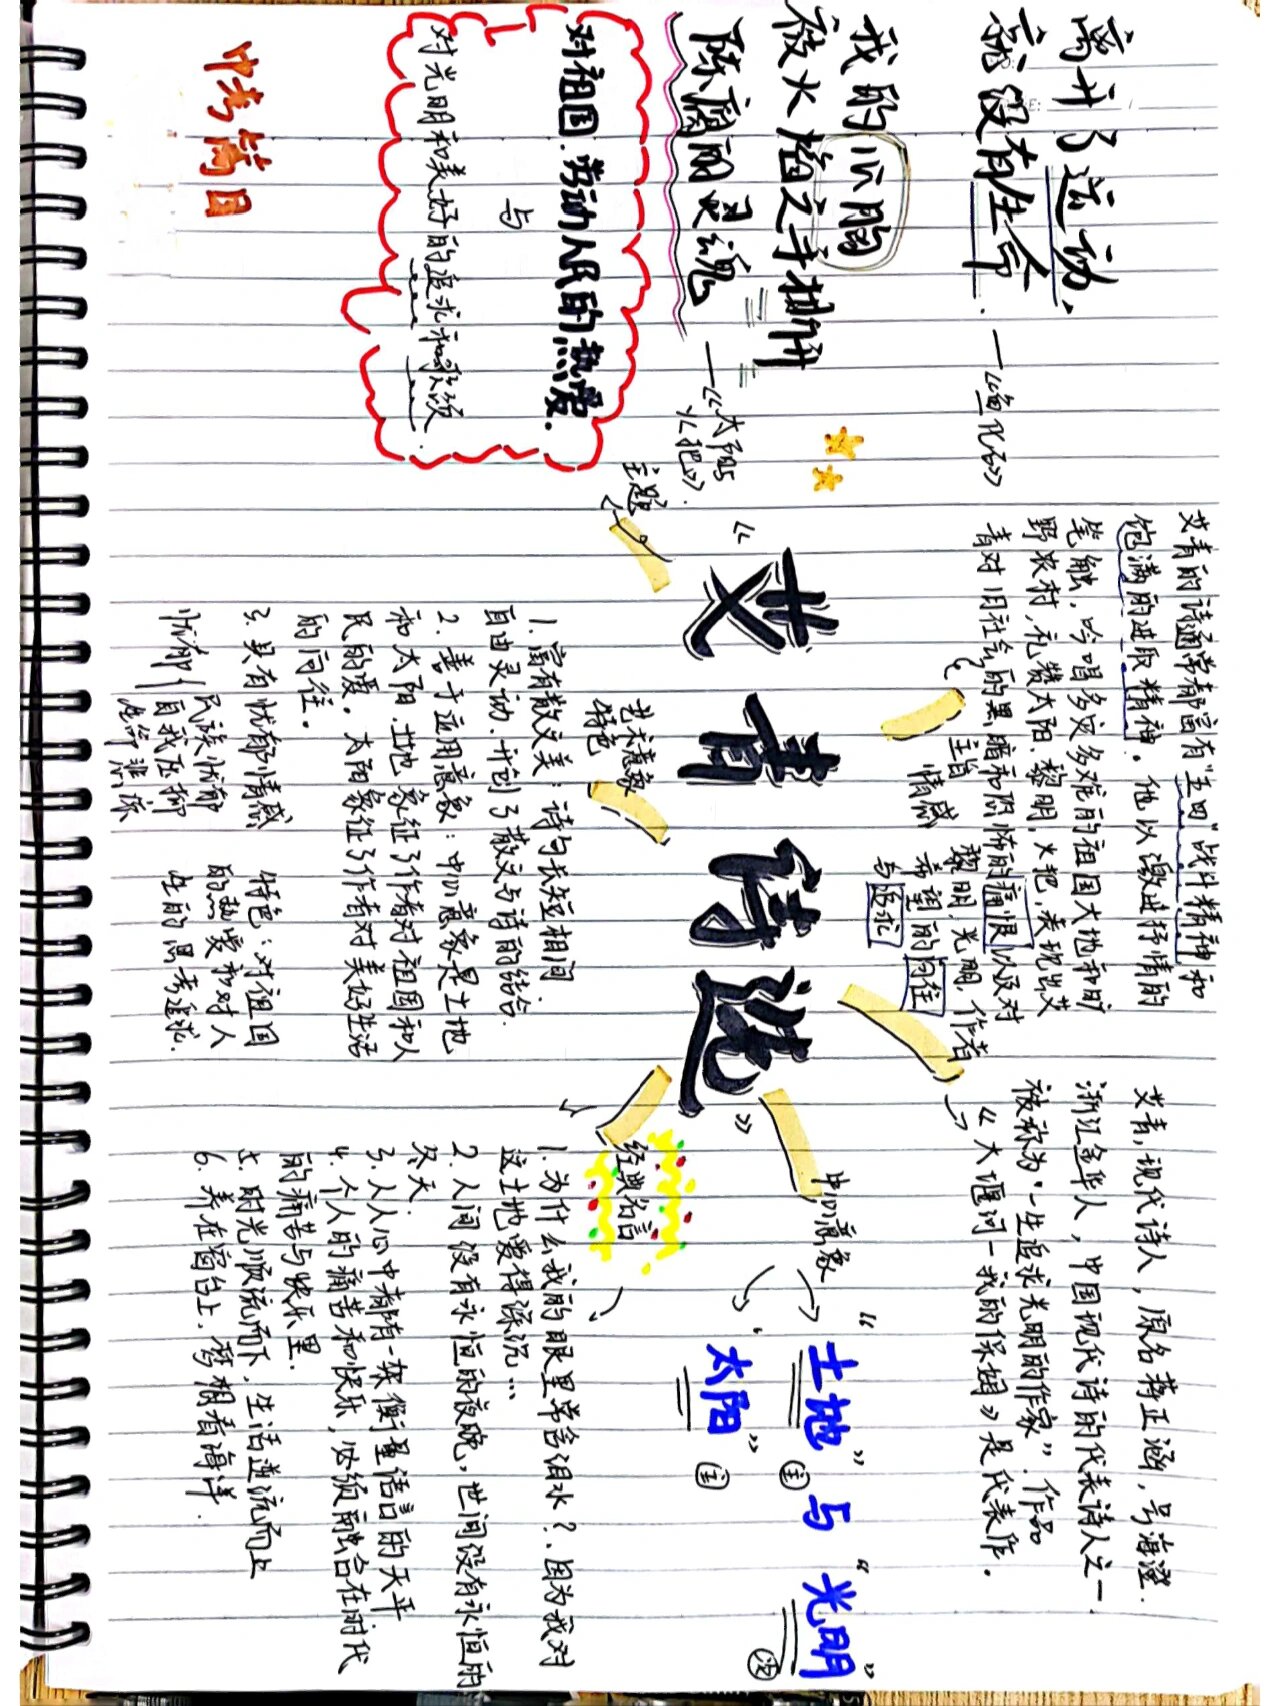 离开了运动，
就没有生命。
—《鱼化石》
我的心胸
被火焰之手撕开
陈腐的灵魂
—《太阳》
《火把》.
对祖国.劳动人民的热爱.
与
对光明和美好的追求和歌颂.
中考篇目
艾青的诗通常都富有"五四"战斗精神和
饱满的进取精神。他以激进抒情的
笔触，吟唱多灾多难的祖国大地和旷
野农村，礼赞太阳、黎明、火把，表现出艾
青对旧社会的黑暗和恐怖的痛恨以及对
黎明、光明、
希望的向往
与追求
主旨
情感
作者
艾青，现代诗人，原名蒋正涵，号海澄.
浙江金华人，中国现代诗的代表诗人之一
被称为"一生追求光明的作家".作品
《大堰河—我的保姆》是代表作。
《艾青诗选》
主题
艺术意象
特色
1.富有散文美：诗句长短相间
自由灵动.开创了散文与诗的结合.
2.善于运用意象：中心意象是土地
和太阳.土地象征了作者对祖国和人
民的爱。太阳象征了作者对美好生活
的向往。
3.具有忧郁情感
忧郁
民族忧郁
自我压抑
特色：对祖国
的热爱和对人
生的思考追求.
中心意象
"土地"与"光明"
"太阳"
经典名言
1.为什么我的眼里常含泪水？.因为我对
这土地爱得深沉…
2.人间没有永恒的夜晚，世间没有永恒的
冬天.
3.人人心中都有一架衡量语言的天平
4.个人的痛苦和快乐，必须融合在时代
的痛苦与快乐里.
5.时光顺流而下，生活逆流而上
6.养在窗台上.梦想着海洋.